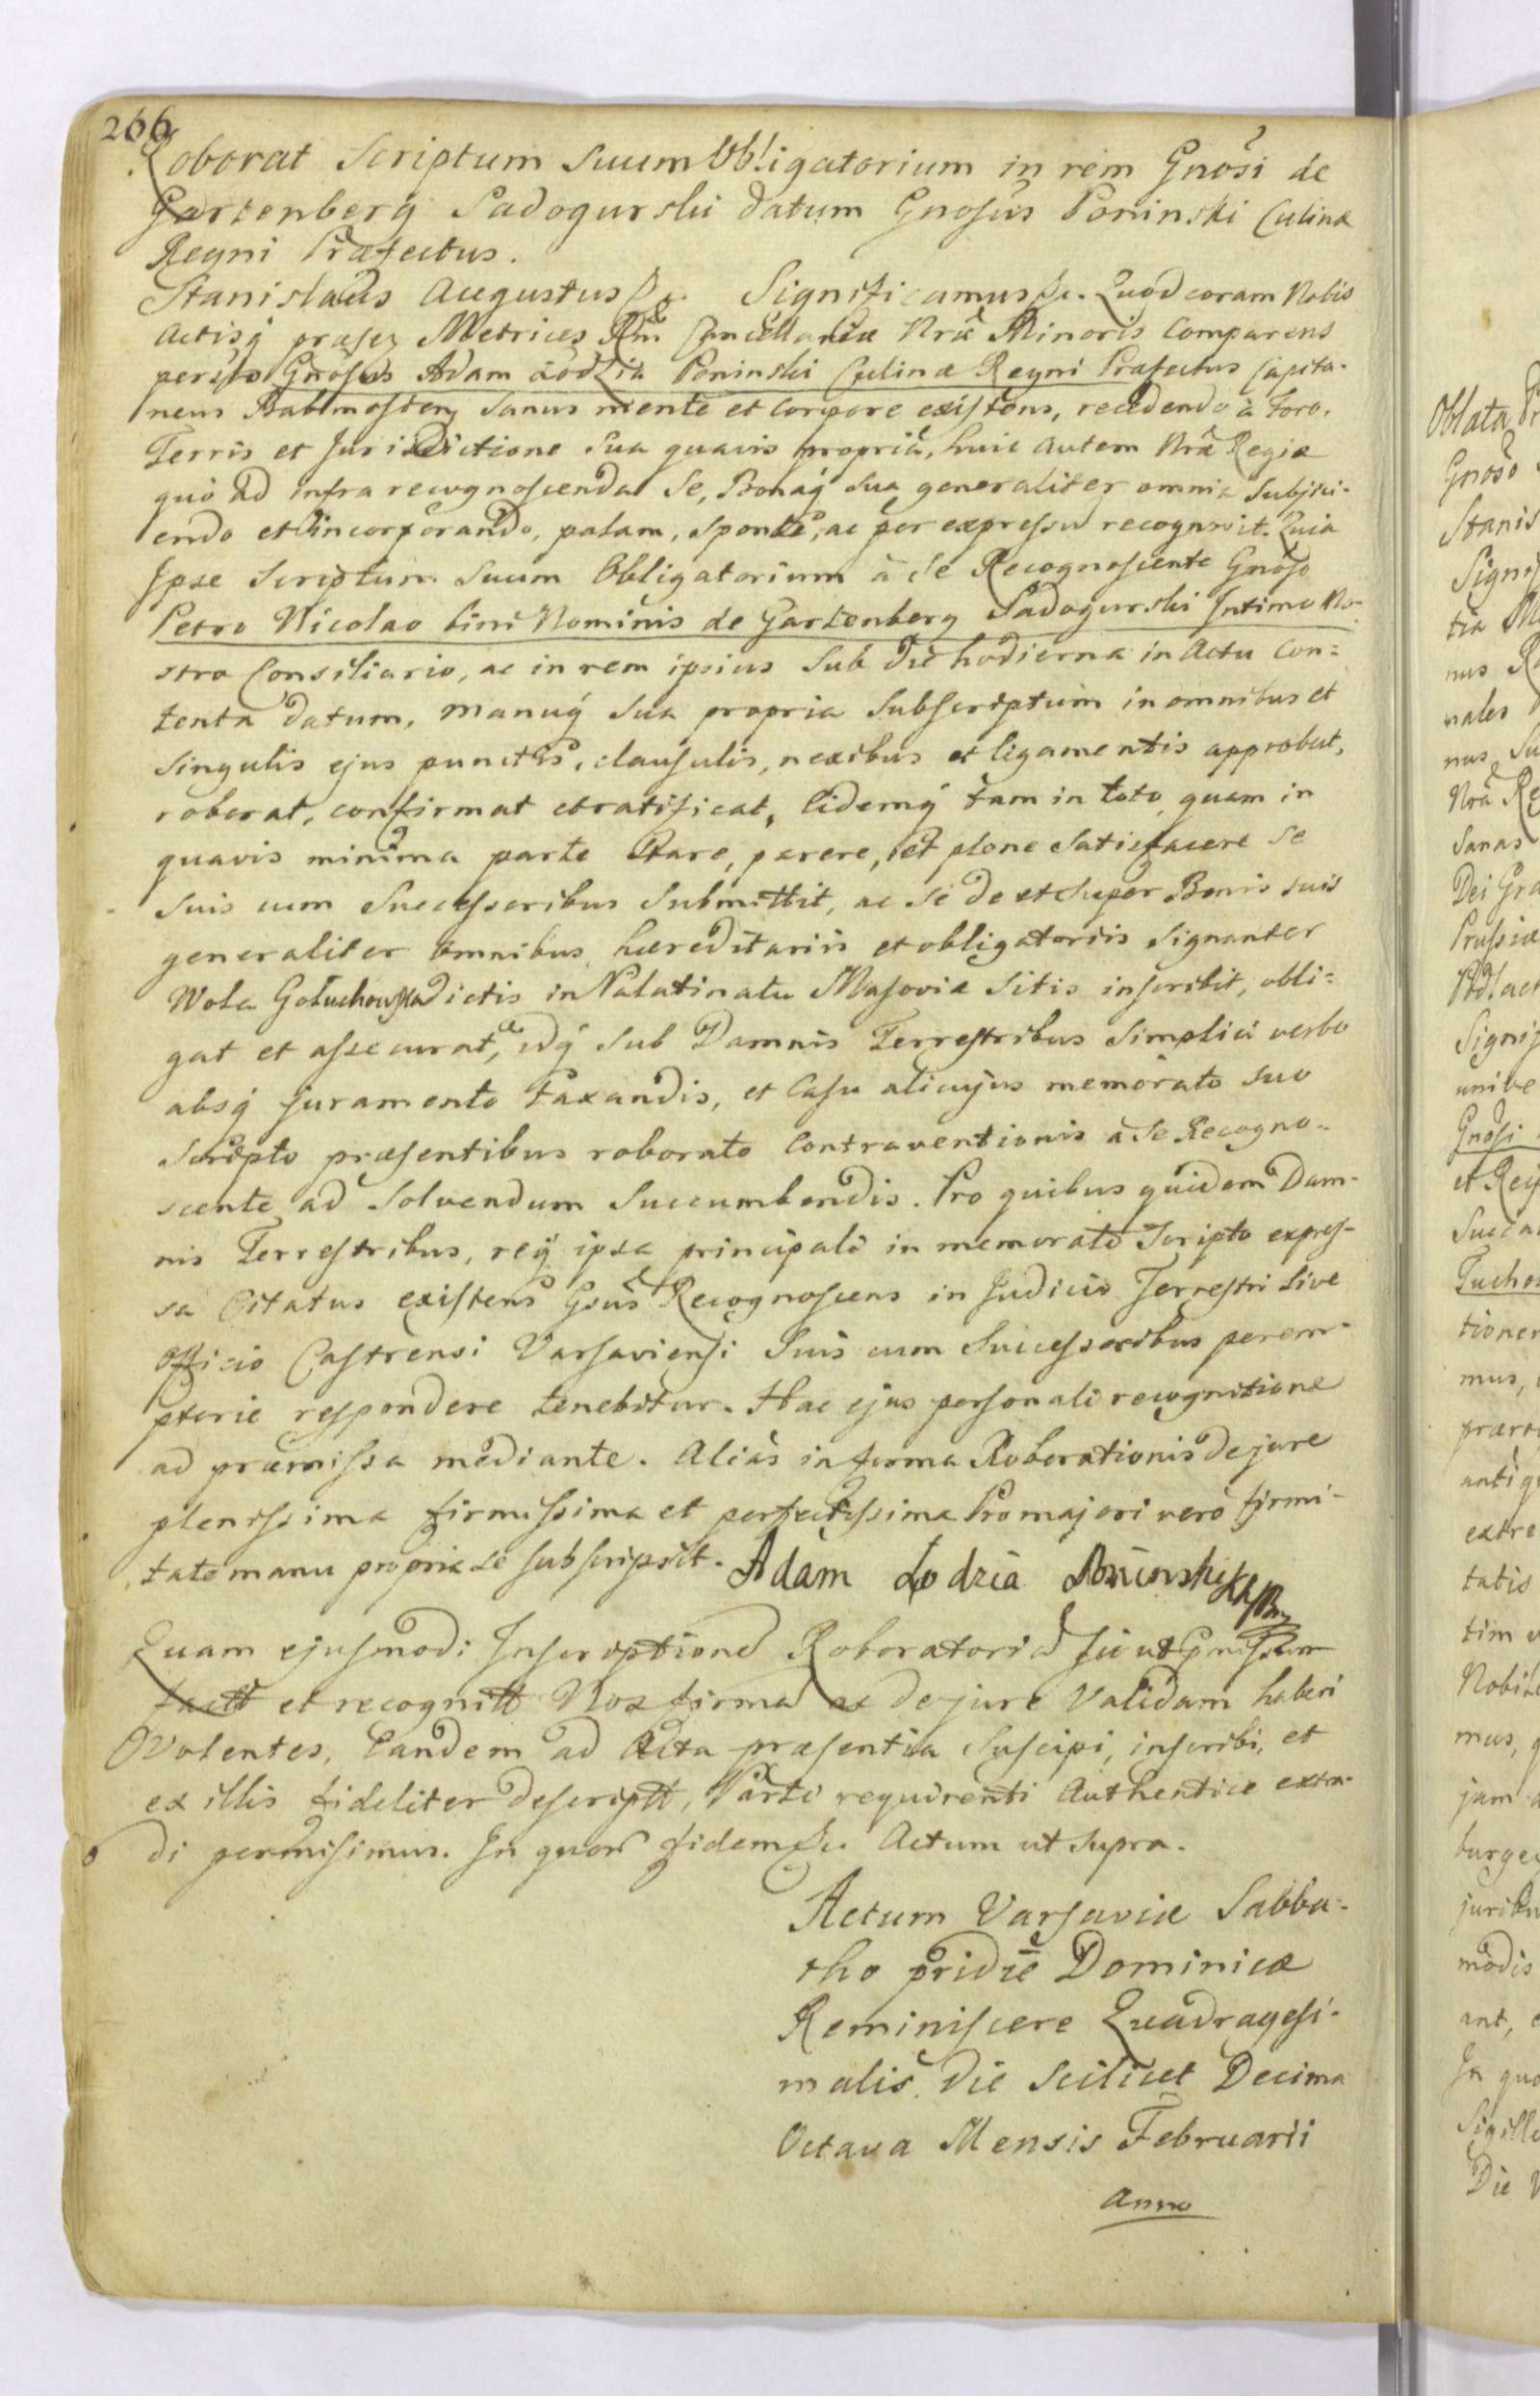 266
Roborat Scriptum Suum Obligatorium in rem Gnosi de
Gartenberg Sadogurski datum Gnosus Poninski Culinæ
Regni Præfectus.
Stanislaus Augustus &c. Significamus &c. Quod coram Nobis
Actisq præsez Metrices Rni Cancellariæ Nræ Minoris Comparens
perslr Gnosus Adam Łodzia Poninski Culinæ Regni Præfectus Capita-
neus Babimosten Sanus mente et Corpore existens, recedendo à Foro,
Terris et Jurisdictione Sua quavis propriâ, huic autem Nræ Regiæ
quò ad infra recognoscenda Se, Bonaq Sua generaliter omnia Subjici-
endo et incorporando, palam, sponte, ac per expressu recognovit. Quia
Ipse Scriptum Suum Obligatorium à Se Recognoscente Gnoso
Petro Nicolao bini Nominis de Gartenberg Sadogurski Intimo No-
stro Consiliario, ac in rem ipsius Sub Die hodierna in Actu Con=
tenta datum, manuq Sua propria Subscriptum in omnibus et
Singulis ejus punctis, clausulis, nexibus et ligamentis approbat,
roborat, confirmat et ratificat, Eidemq tam in toto quam in
quavis minima parte Stare, parere, et plene Satisfacere Se
Suis cum Successoribus Submittit, ac Se de et Super Bonis suis
generaliter Omnibus hæreditariis et obligatoriis Signanter
Wola Gołuchowska dictis in Palatinatu Masoviæ Sitis inscribit, obli=
gat et assecurat, idq Sub Damnis Terrestribus Simplici verbo
absq juramento taxandis, et Casu alicujus memorato Suo
Scripto præsentibus roborato Contraventionis à Se Recogno-
scente ad Solvendum Succumbendis. Pro quibus quidem Dam-
nis Terrestribus, req ipsa principali in memorato Scripto expres-
sa Citatus existens Gsus Recognoscens in Judicio Terrestri Sive
Officio Castrensi Varsaviensi Suis cum Successoribus perem-
ptorie respondere tenebitur. Hac ejus personali recognitione
ad præmissa mediante. Aliàs in forma Roborationis de jure
plenissima firmissima et perfectissima Pro majori verò firmi-
tate manu propria se subscripsit. Adam Łodzia Poninski
Quam ejusmodi Inscriptione Roboratoria sic ut Pmissum
factt et recognitt Nos firma ac de jure Validam haberi
Volentes, Eandem ad Acta præsentia Suscipi, inscribi, et
ex illis fideliter descriptt, Parti requirenti Authentice extra-
di permisimus. In quor fidem &c. Actum ut Supra.
Actum Varsaviæ Sabba=
tho pridie Dominicæ
Reminiscere Quadragesi-
malis Die Scilicet Decima
Octava Mensis Februarii
Anno
Oblata
Gnoso
Stanis
tia
nus
nales
Sanas
Dei Gra
Prussiæ
Gnosi
mus,
tatis
jam
ant,
In quo
Die